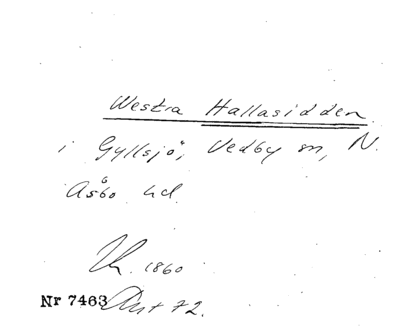 Westra Hallasidden.
i Gyllsjö, Vedby sn, N.
Åsbo hd.
1860
Nr 7463 Aut 72.